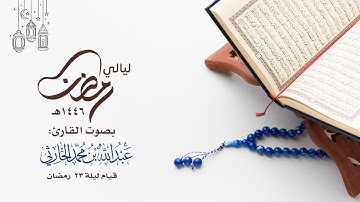 ليالي
رمضان
١٤٤٦هـ
بصوت القارئ:
عبدالله بن محمد الخارثي
قيام ليلة ٢٣ رمضان